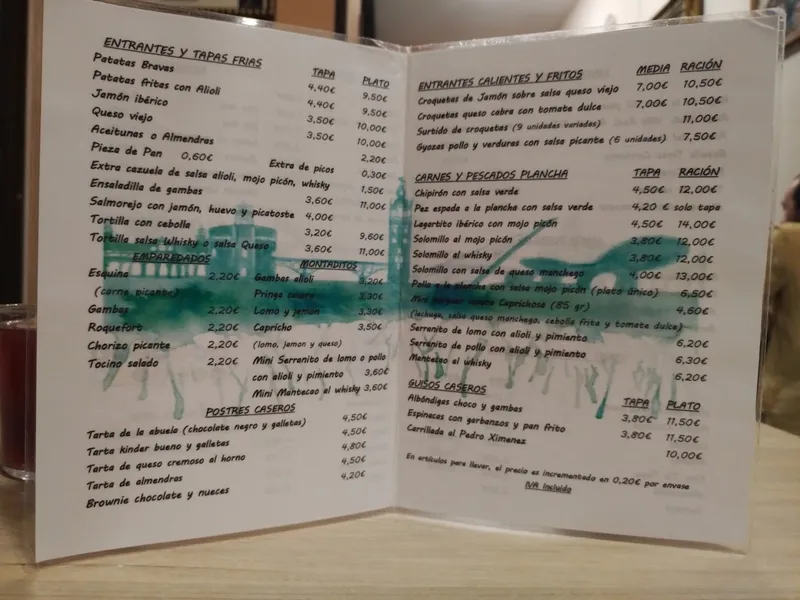 ENTRANTES Y TAPAS FRIAS TAPA PLATO
Patatas Bravas 4,40€ 9,50€
Patatas fritas con Alioli 4,40€ 9,50€
Jamón ibérico 3,50€ 10,00€
Queso viejo 3,50€ 10,00€
Aceitunas o Almendras 2,20€
Pieza de Pan 0,60€ Extra de picos 0,30€
Extra cazuela de salsa alioli, mojo picón, whisky 1,50€
Ensaladilla de gambas 3,60€ 11,00€
Salmorejo con jamón, huevo y picatoste 4,00€
Tortilla con cebolla 3,20€ 9,60€
Tortilla salsa Whisky o salsa Queso 3,60€ 11,00€
EMPAREDADOS
Esquina 2,20€
(carne picante)
Gambas 2,20€
Roquefort 2,20€
Chorizo picante 2,20€
Tocino salado 2,20€
MONTADITOS
Gambas alioli 3,20€
Pringa casera 3,30€
Lomo y jamon 3,30€
Capricho 3,50€
(lomo, jamon y queso)
Mini Serranito de lomo o pollo
con alioli y pimiento 3,60€
Mini Mantecao al whisky 3,60€
POSTRES CASEROS
Tarta de la abuela (chocolate negro y galletas) 4,50€
Tarta kinder bueno y galletas 4,50€
Tarta de queso cremoso al horno 4,80€
Tarta de almendras 4,50€
Brownie chocolate y nueces 4,20€
ENTRANTES CALIENTES Y FRITOS MEDIA RACIÓN
Croquetas de Jamón sobre salsa queso viejo 7,00€ 10,50€
Croquetas queso cabra con tomate dulce 7,00€ 10,50€
Surtido de croquetas (9 unidades variadas) 11,00€
Gyozas pollo y verduras con salsa picante (6 unidades) 7,50€
CARNES Y PESCADOS PLANCHA TAPA RACIÓN
Chipirón con salsa verde 4,50€ 12,00€
Pez espada a la plancha con salsa verde 4,20 € solo tapa
Lagartito ibérico con mojo picón 4,50€ 14,00€
Solomillo al mojo picón 3,80€ 12,00€
Solomillo al whisky 3,80€ 12,00€
Solomillo con salsa de queso manchego 4,00€ 13,00€
Pollo a la plancha con salsa mojo picón (plato único) 6,50€
Mini burguer casera Caprichosa (85 gr) 4,60€
(lechuga, salsa queso manchego, cebolla frita y tomate dulce)
Serranito de lomo con alioli y pimiento 6,20€
Serranito de pollo con alioli y pimiento 6,30€
Mantecao al whisky 6,20€
GUISOS CASEROS TAPA PLATO
Albóndigas choco y gambas 3,80€ 11,50€
Espinacas con garbanzos y pan frito 3,80€ 11,50€
Carrillada al Pedro Ximenez 10,00€
En artículos para llevar, el precio es incrementado en 0,20€ por envase
IVA Incluido